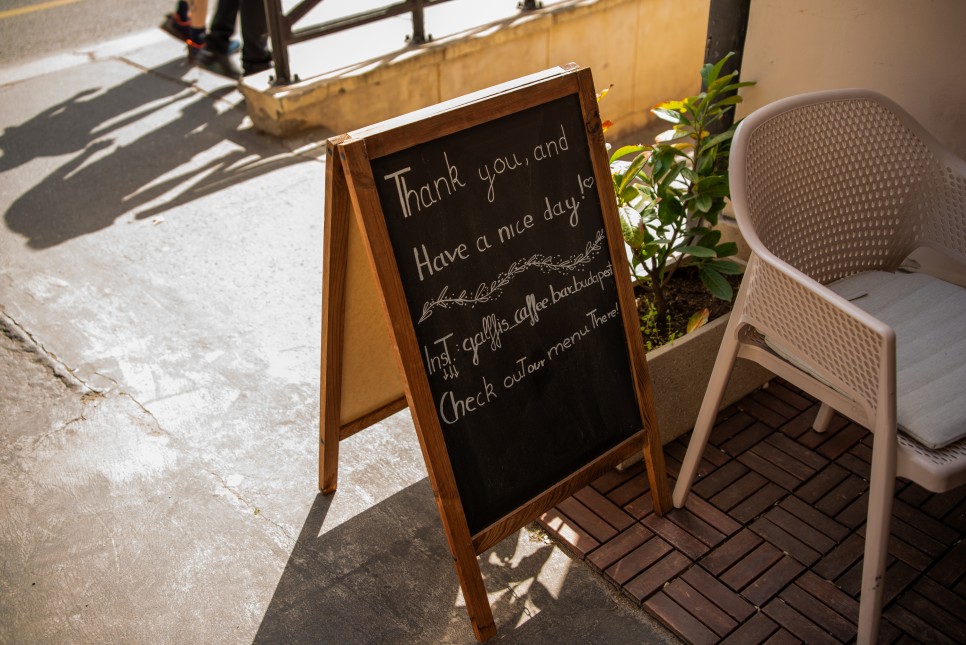 Thank you, and
Have a nice day!♡
InsT.: galffis_caffee.bar.budapest
↓↓↓
Check ouT our menu There!